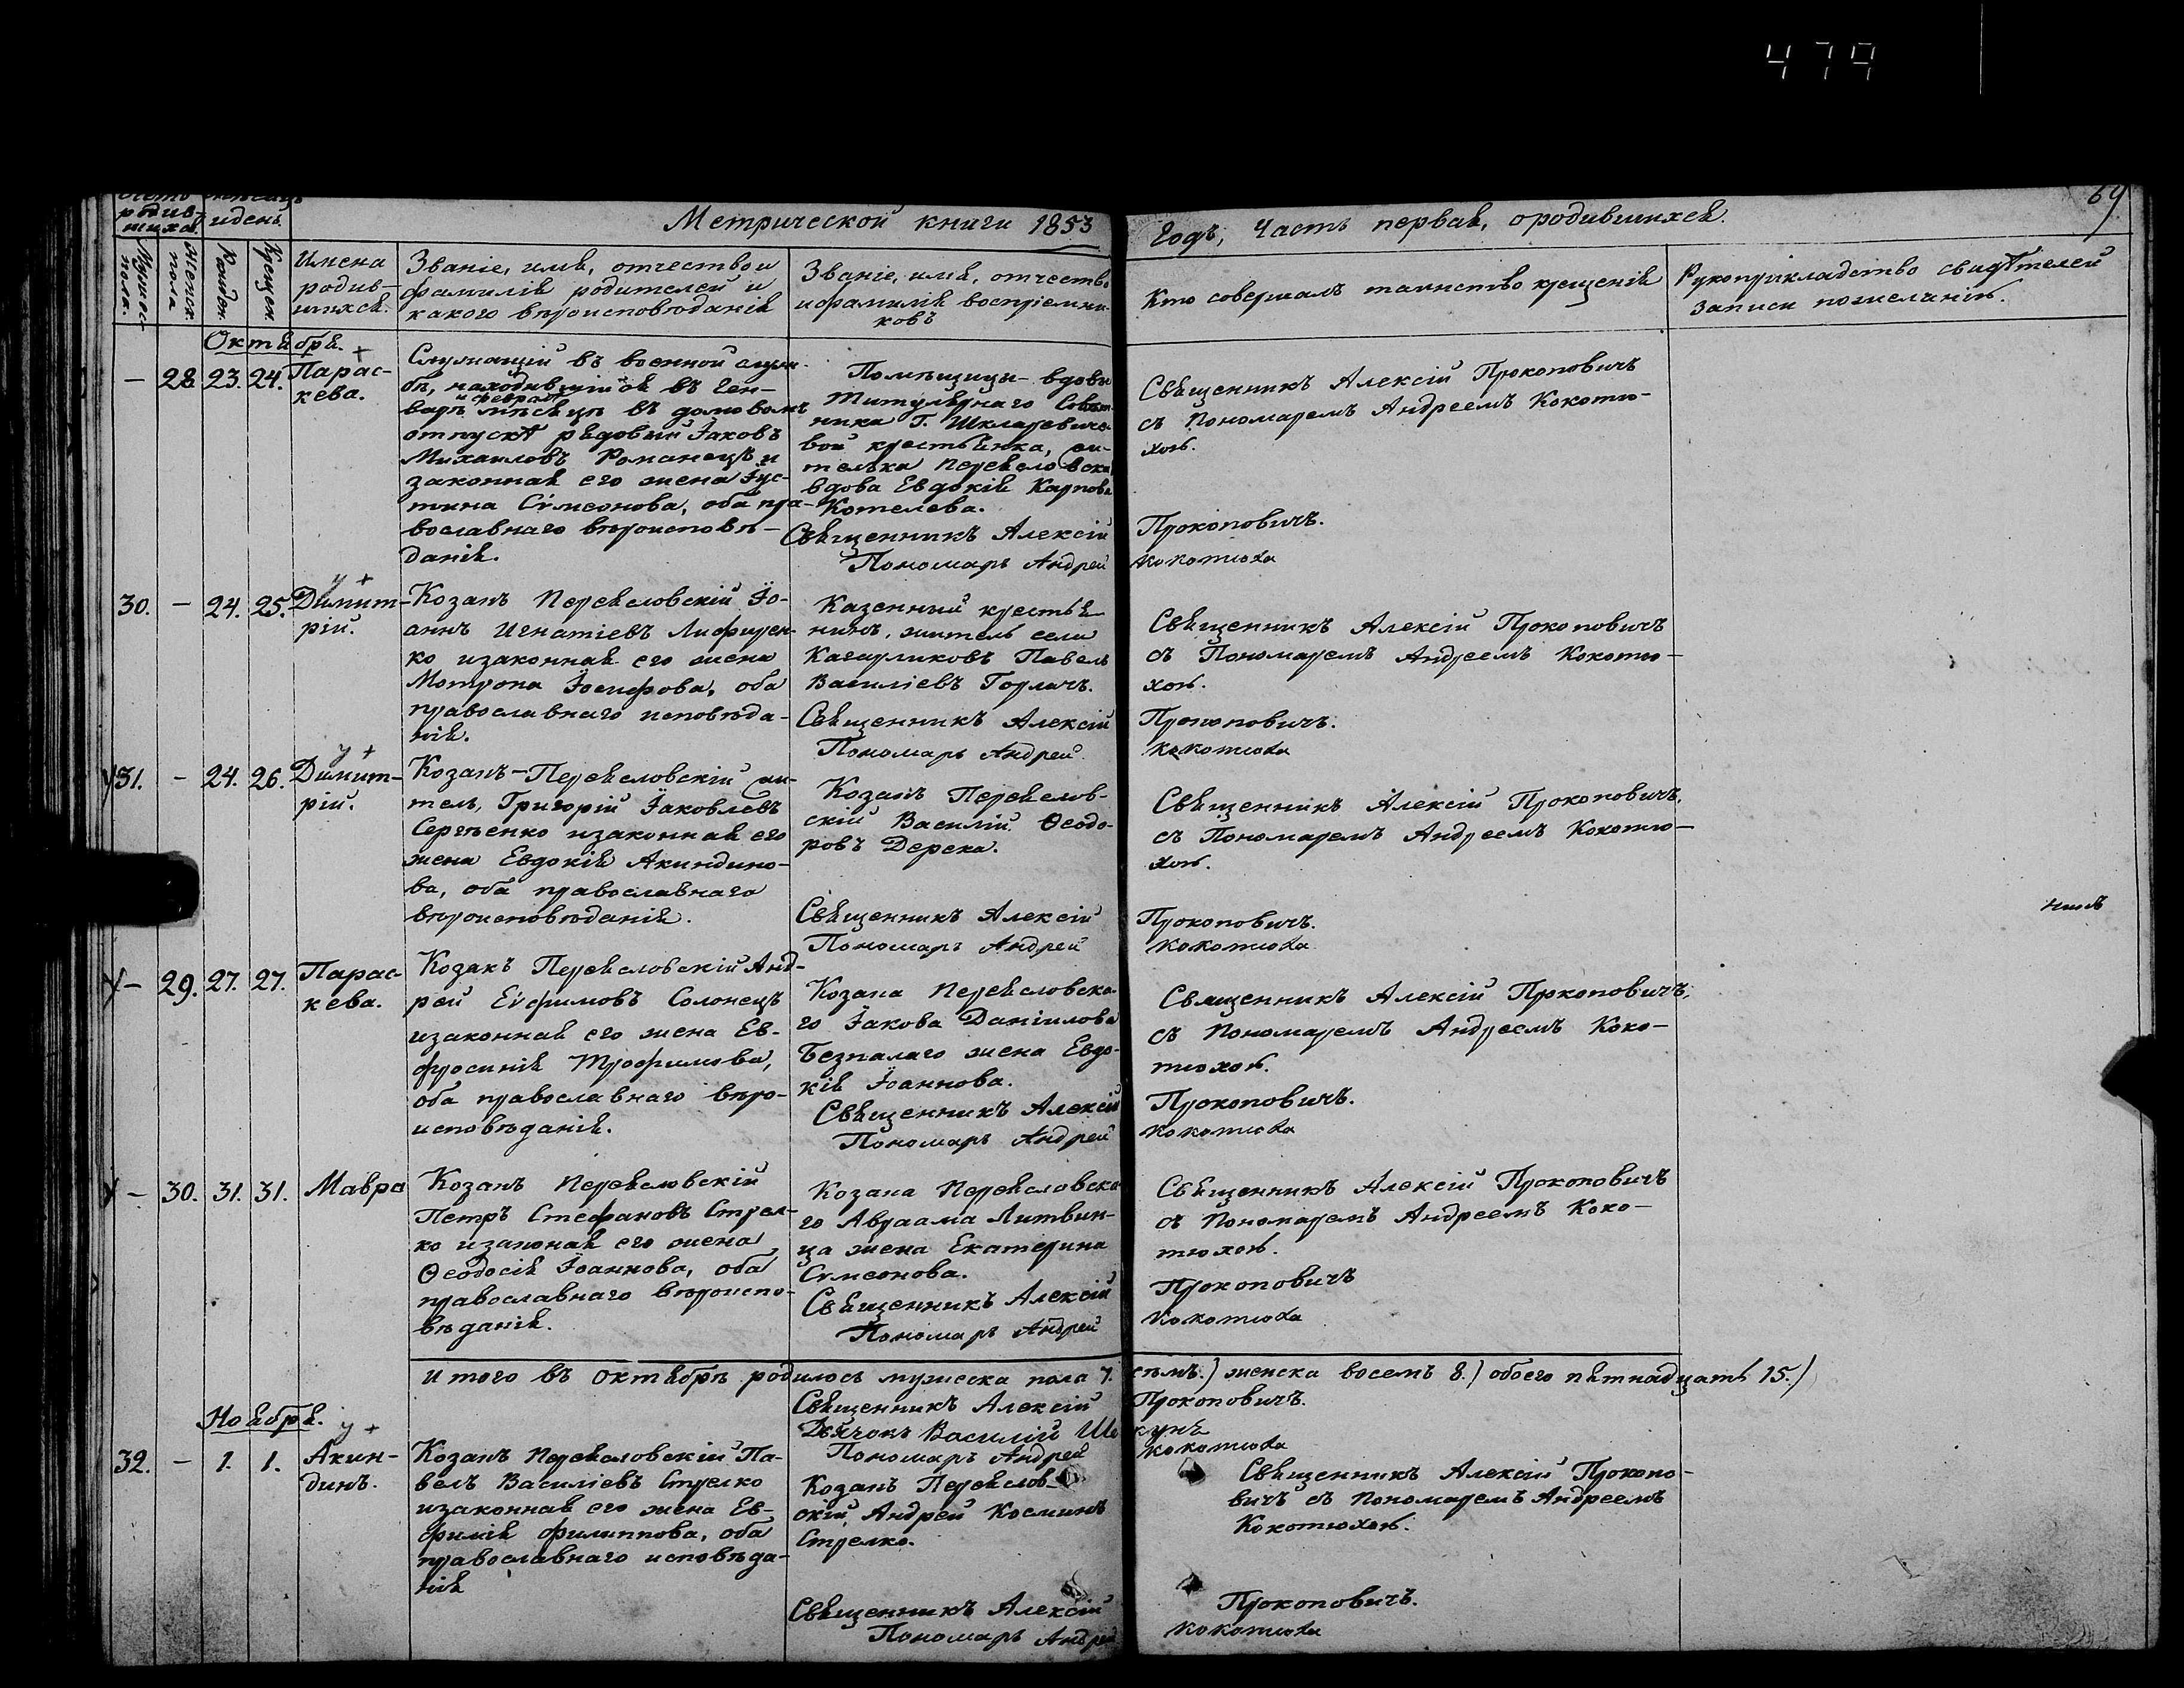 479
69
Метрической книги 1853
Годъ, Часть первая, ородившихся.
родив-
шихся.
идень.
Мужес-
пола.
Женск.
пола
Рожден.
Крещен.
Имена
родив-
шихся.
Званіе, имя, отчество и
фамилія родителей и
какого вѣроисповѣданія
Званіе, имя, отчество
ифамилія воспріемни-
ковъ
Кто совершалъ таинство крещенія
Рукоприкладство свидѣтелей
записи пожеланію.
Октября.
— 28. 23. 24. Парас-
кева.
Служащій въ военной служ-
бѣ, находившійся въ Ген-
и февралѣ
варѣ мѣсяцѣ въ домовомъ
отпускѣ рядовый Іаковъ
Михаиловъ Романецъ и
законная его жена Іус-
тина Сѵмеонова, оба пра-
вославнаго вѣроисповѣ-
данія.
Помѣщицы-вдовы
Титулярнаго Совет-
ника Г. Шкляревиче-
вой крестьянка, жи-
телька Переясловска
вдова Евдокія Карпова
Котелева.
Священникъ Алексій
Пономарь Андрей
Священникъ Алексій Прокоповичъ
съ Пономаремъ Андреемъ Кокотю-
хою.
Прокоповичъ.
Кокотюха
30. — 24. 25. Димит-
рій.
Козакъ Переясловскій Іо-
аннъ Игнатіевъ Лифирен-
ко изаконная его жена
Мотрона Іосифова, оба
православнаго исповѣда-
нія.
Казенный крестья-
нинъ, житель села
Кагарликовъ Павелъ
Василіевъ Горлачъ.
Священникъ Алексій
Пономарь Андрей
Священникъ Алексій Прокоповичъ
съ Пономаремъ Андреемъ Кокотю-
хою.
Прокоповичъ.
Кокотюха
31. — 24. 26. Димит-
рій.
Козакъ-Переясловскій жи-
тель, Григорій Іаковлевъ
Сергѣенко изаконная его
жена Евдокія Акиндино-
ва, оба православнаго
вѣроисповѣданія.
Козакъ Переяслов-
скій Василій Ѳеодо-
ровъ Дерека.
Священникъ Алексій
Пономарь Андрей
Священникъ Алексій Прокоповичъ,
съ Пономаремъ Андреемъ Кокотю-
хою.
Прокоповичъ.
Кокотюха
— 29. 27. 27. Парас-
кева.
Козакъ Переясловскій Анд-
рей Еѵфимовъ Солонецъ
изаконная его жена Ев-
фросинія Трофимова,
оба православнаго вѣро-
исповѣданія.
Козака Переясловска-
го Іакова Даніилова
Безпалаго жена Евдо-
кія Іоаннова.
Священникъ Алексій
Пономарь Андрей
Священникъ Алексій Прокоповичъ,
съ Пономаремъ Андреемъ Коко-
тюхою.
Прокоповичъ.
Кокотюха
— 30. 31. 31. Мавра
Козакъ Переясловскій
Петръ Стефановъ Стрел-
ко изаконая его жена
Ѳеодосія Іоаннова, оба
православнаго вѣроиспо-
вѣданія.
Козака Переясловска
го Авраама Литвин-
ца жена Екатерина
Сѵмеонова.
Священникъ Алексій
Пономарь Андрей
Священникъ Алексій Прокоповичъ
съ Пономаремъ Андреемъ Коко-
тюхою.
Прокоповичъ
Кокотюха
Итого въ Октябрѣ родилось мужеска пола 7. семь.) женска восемъ 8.) обоего пятнадцать 15.)
Священникъ Алексій Прокоповичъ.
Дьячокъ Василій
Пономарь Андрей Кокотюха
Ноября.
32. — 1. 1. Акин-
динъ.
Козакъ Переясловскій Па-
велъ Василіевъ Стрелко
изаконная его жена Ев-
фимія Филиппова, оба
православнаго исповѣда-
нія
Козакъ Переяслов-
скій, Андрей Косминъ
Стрелко.
Священникъ Алексій
Пономарь Андрей
Священникъ Алексій Прокопо-
вичъ съ Пономаремъ Андреемъ
Кокотюхою.
Прокоповичъ.
Кокотюха